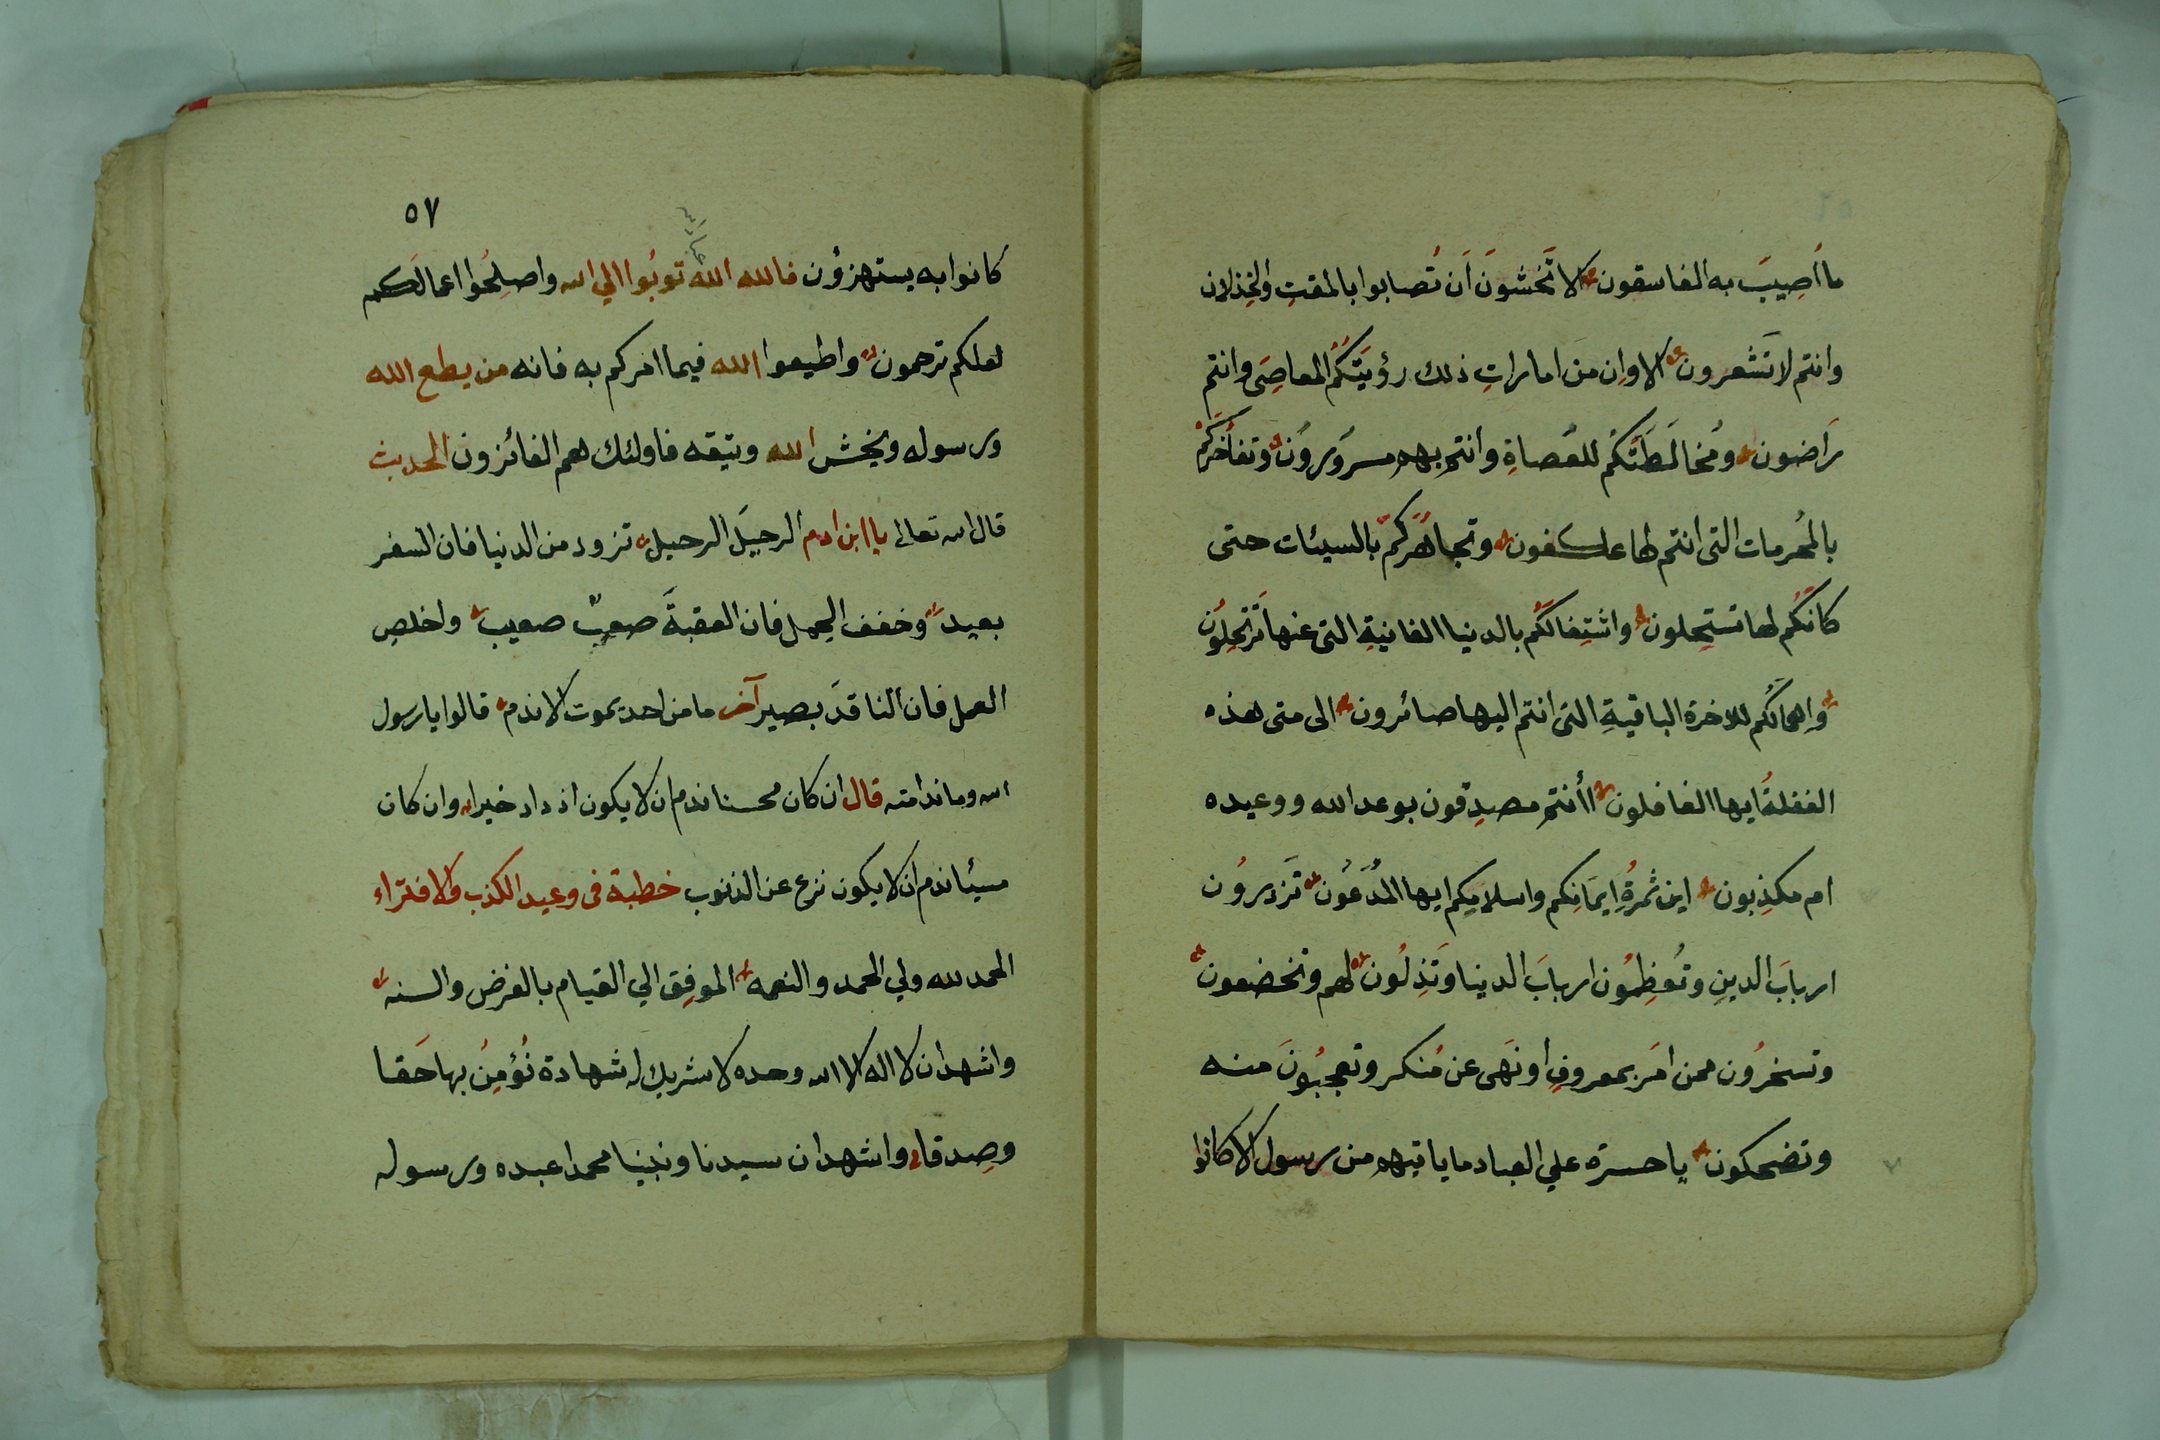 ما أُصِيبَ به الفاسقون الا تَخشونَ اَن تُصابوا بالمقتِ والخِذلان
وانتم لا تَشعرون الا واِن من امارات ذلك رؤيَتكُم المعاصىَ وانتم
رَاضون ومُخالَطَتكُم للعُصاةِ وانتم بهم مسرُورون وتفاخُركُم
بالمُحرمات التى انتم لها عاكفون وتجاهُركُم بالسيئات حتى
كانكُم لها تستحِلون واشتِغالكُم بالدنيا الفانيةِ التى عنها تَرتحِلوُن
واِهمالكُم للاخرة الباقيةِ التى انتم اليها صائرون الى متى هذه
الغفلةُ ايها الغافلون أأنتم مصدِقون بوعد الله ووعيده
ام مكذِبون اين ثمرةُ اِيمانِكم واسلامِكم ايها المُدَعُون تَزدرُون
اربابَ الدينِ وتُعظِمُون اربابَ الدنيا وتَذِلُون لهم وتخضعون
وتسخرُون ممن امَر بمعروفٍ اونَهى عن مُنكر وتعجبُونَ منه
وتضحكون يا حسرة علي العباد ما ياتيهم من رسول الا كانوا
٥٧
كانوا به يستهزؤن فالله الله توبُوا الي الله واصلِحُوا اعمالَكم
لعلكم ترحمون واطيعوا الله فيما امركم به فانه من يطع الله
ورسوله ويخش الله ويتيقه فاولئك هم الفائزون الحديث
قال الله تعالى يا ابن ادم الرحيَل الرحيل تزود من الدنيا فان السفر
بعيد وخفف الحِمل فان العقبةَ صعبٌ صعيب واخلصِ
العمل فان الناقدَ بصير آخر ما من احد يموت الا ندم قالوا يا رسول
الله وما ندامته قال ان كان محسنا ندم ان لا يكون ازداد خيرا وان كان
مسيئا ندم ان لا يكون نزع عن الذنوب خطبة فى وعيد الكذب والافتراء
الحمد لله ولي الحمد والنعمه الموفِق الي القيام بالفرض والسنه
واشهد ان لا اله الا الله وحده لا شريك له شهادة نُؤمِنُ بها حَقا
وصِدقا واشهد ان سيدنا ونبينا محمدا عبده ورسوله